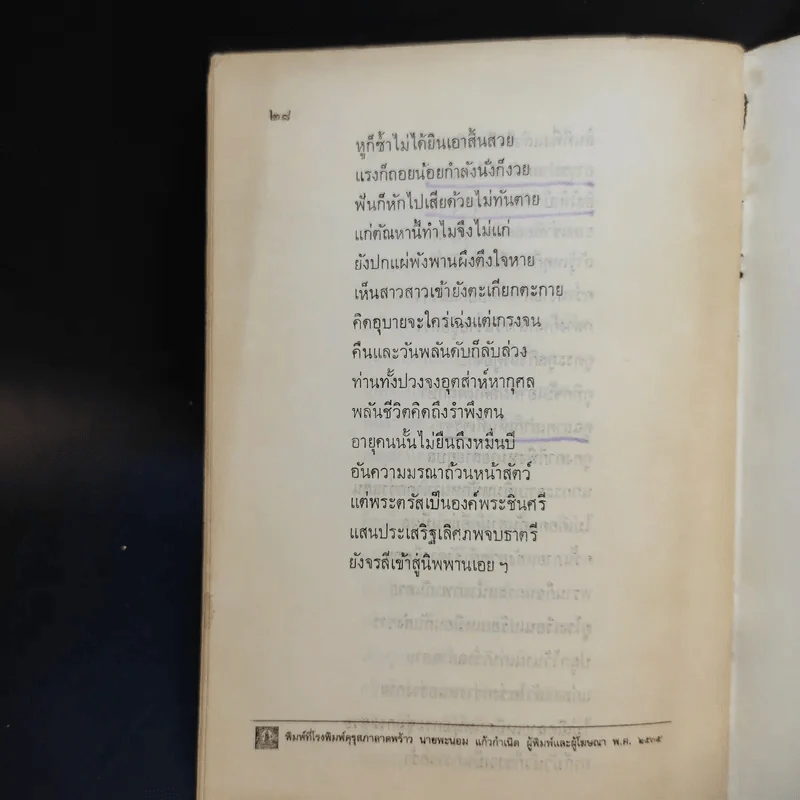 ๒๘
หูก็ซ้ำไม่ได้ยินเอาสิ้นสวย
แรงก็ถอยน้อยกำลังนั่งก็งวย
ฟันก็หักไปเสียด้วยไม่ทันตาย
แก่ตัณหานี้ทำไมจึงไม่แก่
ยังปกแผ่พังพานผึงตึงใจหาย
เห็นสาวสาวเข้ายังตะเกียกตะกาย
คิดอุบายจะใคร่เฉ่งแต่เกรงจน
คืนและวันพลันดับก็ลับล่วง
ท่านทั้งปวงจงอุตส่าห์หากุศล
พลันชีวิตคิดถึงรำพึงตน
อายุคนนั้นไม่ยืนถึงหมื่นปี
อันความมรณาถ้วนหน้าสัตว์
แต่พระตรัสเป็นองค์พระชินศรี
แสนประเสริฐเลิศภพจบธาตรี
ยังจรลีเข้าสู่นิพพานเอย ฯ
พิมพ์ที่โรงพิมพ์คุรุสภาลาดพร้าว นายพะนอม แก้วกำเนิด ผู้พิมพ์และผู้โฆษณา พ.ศ. ๒๕๓๕